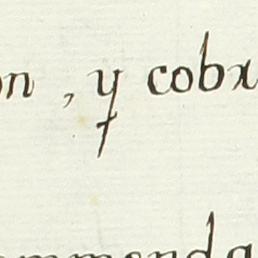 on, y cobx
ommenda